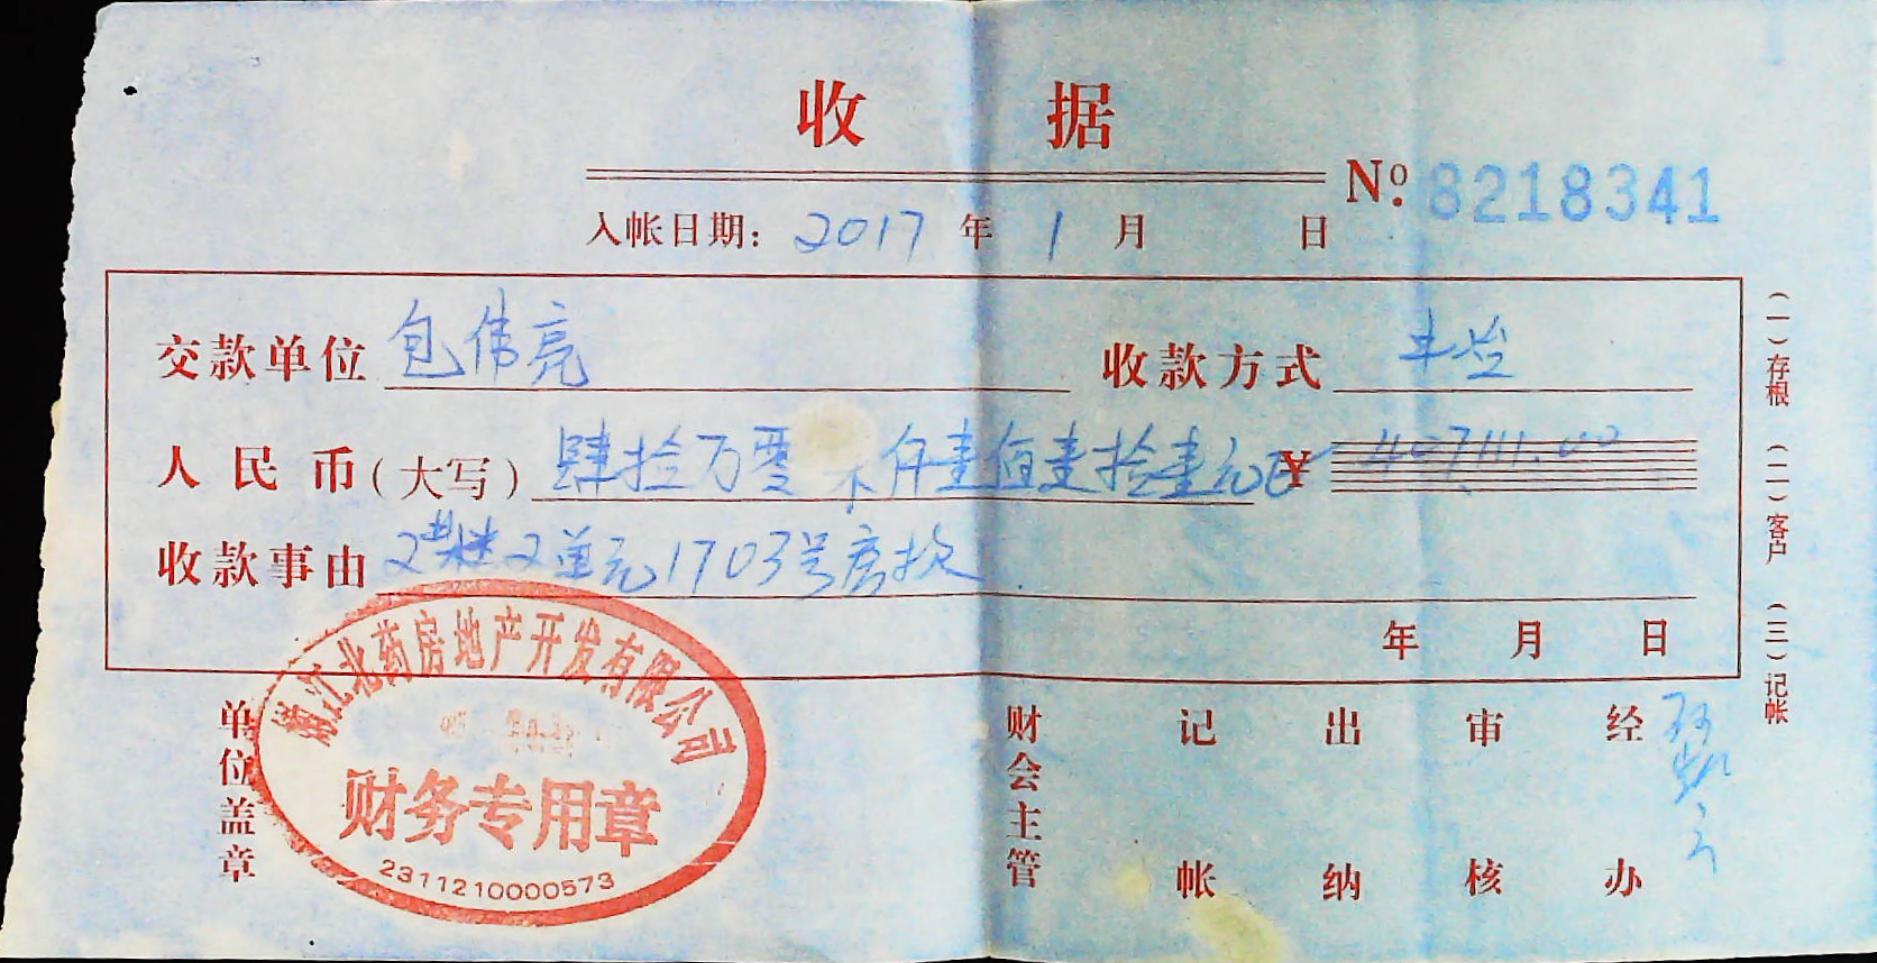 收 据
№ 8218341
入帐日期: 2017 年 1 月 日
交款单位 包伟亮 收款方式
人民币(大写) 肆拾万零 仟壹佰壹拾壹元 ¥ 407111.00
收款事由 2单元1703号房款
年 月 日
(一)存根 (二)客户 (三)记帐
单位盖章
江北药房地产开发有限公司
财务专用章
2311210000573
财会主管 记帐 出纳 审核 经办